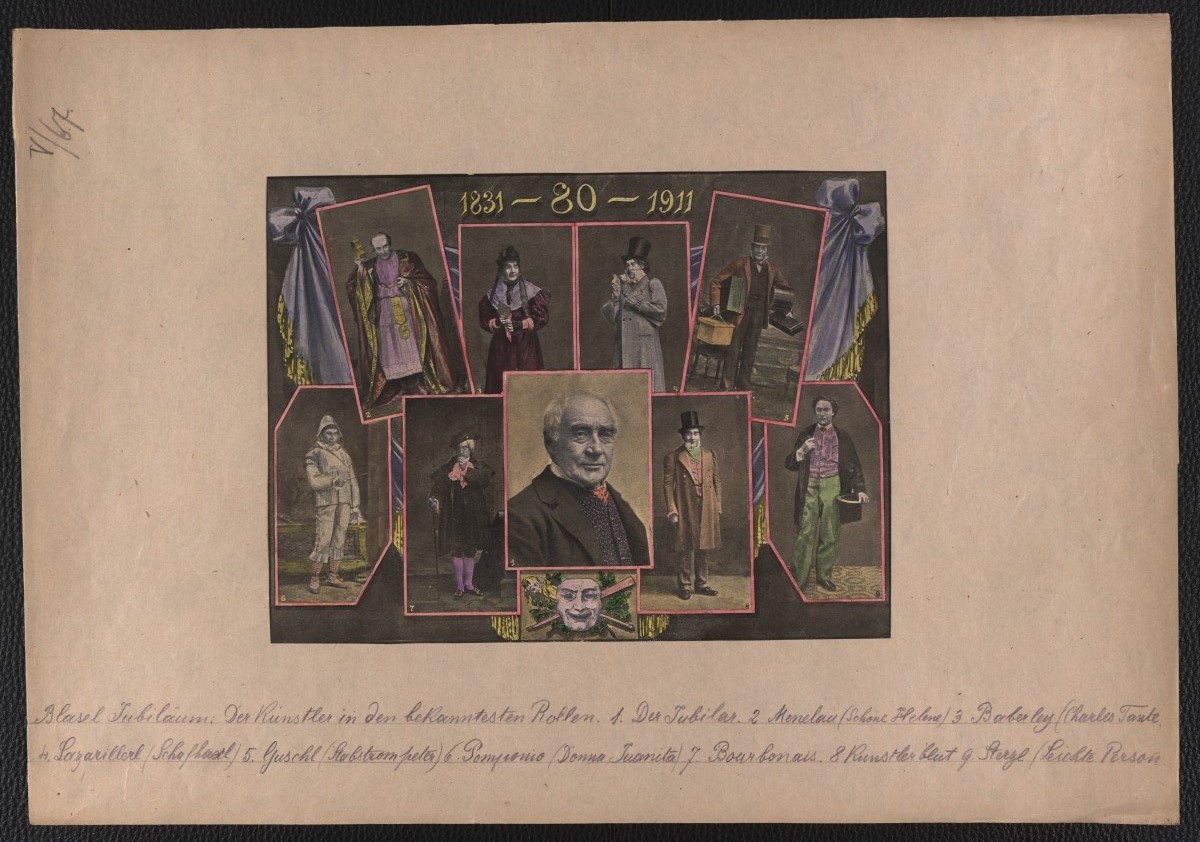 V/67
1831 — 80 — 1911
2
4
5
6
7
1
8
9
Blasel Jubiläum: Der Künstler in den bekanntesten Rollen. 1. Der Jubilar. 2 Menelau (Schöne Helene) 3. Baberley (Charles Tante.
4. Lazarillerl (Schafhaxl) 5. Guschl (Stabstrompeter) 6. Pomponio (Donna Juanita) 7 Bourbonais. 8 Künstlerblut 9 Sterzl (Leichte Person